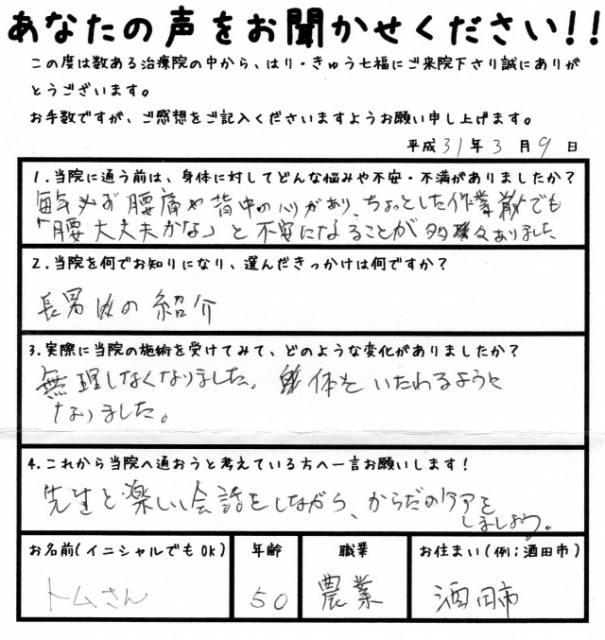 あなたの声をお聞かせください!!
この度は数ある治療院の中から、はり・きゅう七福にご来院下さり誠にありが
とうございます。
お手数ですが、ご感想をご記入くださいますようお願い申し上げます。
平成 31 年 3 月 9 日
1.当院に通う前は、身体に対してどんな悩みや不安・不満がありましたか?
毎年必ず腰痛や背中のハリがあり、ちょっとした作業でも
「腰大丈夫かな」と不安になることが多々ありました
2.当院を何でお知りになり、選んだきっかけは何ですか?
長男の紹介
3.実際に当院の施術を受けてみて、どのような変化がありましたか?
無理しなくなりました。身体をいたわるように
なりました。
4.これから当院へ通おうと考えている方へ一言お願いします!
先生と楽しい会話をしながら、からだのケアを
しましょう。
お名前(イニシャルでもOK) 年齢 職業 お住まい(例;酒田市)
トムさん 50 農業 酒田市